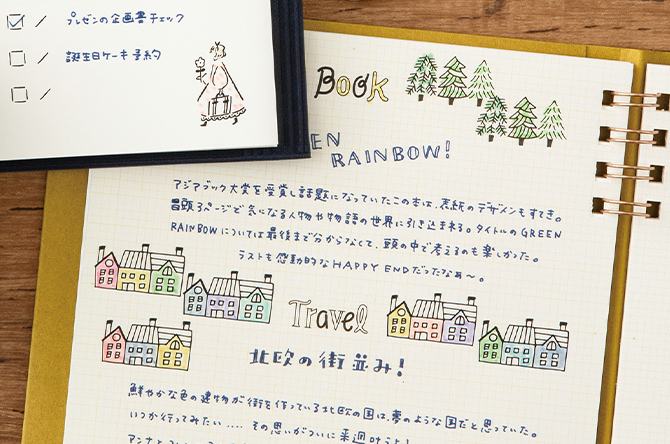 ☑ / プレゼンの企画書チェック
☐ / 誕生日ケーキ予約
☐ /
Book
EN
RAINBOW!
アジアブック大賞を受賞し話題になっていたこの本は、表紙のデザインもすてき。
冒頭3ページで気になる人物や物語の世界に引き込まれる。タイトルのGREEN
RAINBOWについては最後まで分からなくて、頭の中で考えるのも楽しかった。
ラストも感動的なHAPPY ENDだったなぁ〜。
Travel
北欧の街並み!
鮮やかな色の建物が街を作っている北欧の国は、夢のような国だと思っていた。
いつか行ってみたい....その思いがついに来週叶うよ!